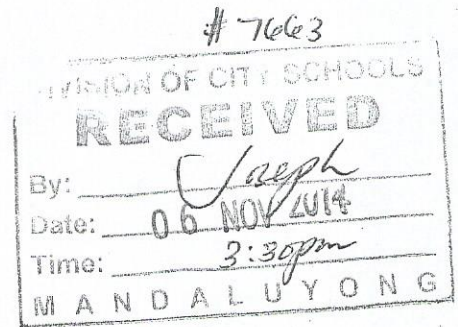 # 7663
DIVISION OF CITY SCHOOLS
RECEIVED
By: Joseph
Date: 06 NOV 2014
Time: 3:30pm
MANDALUYONG